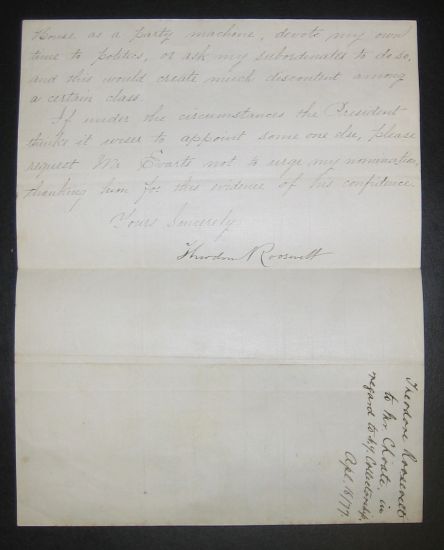 House as a party machine, devote my own
time to politics, or ask my subordinates to do so,
and this would create much discontent among
a certain class.
If under the circumstances the President
thinks it wiser to appoint some one else, please
request Mr Evarts not to urge my nomination,
thanking him for this evidence of his confidence.
Yours Sincerely
Theodore Roosevelt
Theodore Roosevelt
to Mr. Choate, in
regard to N.Y. Collectorship.
Apl. 16/77.